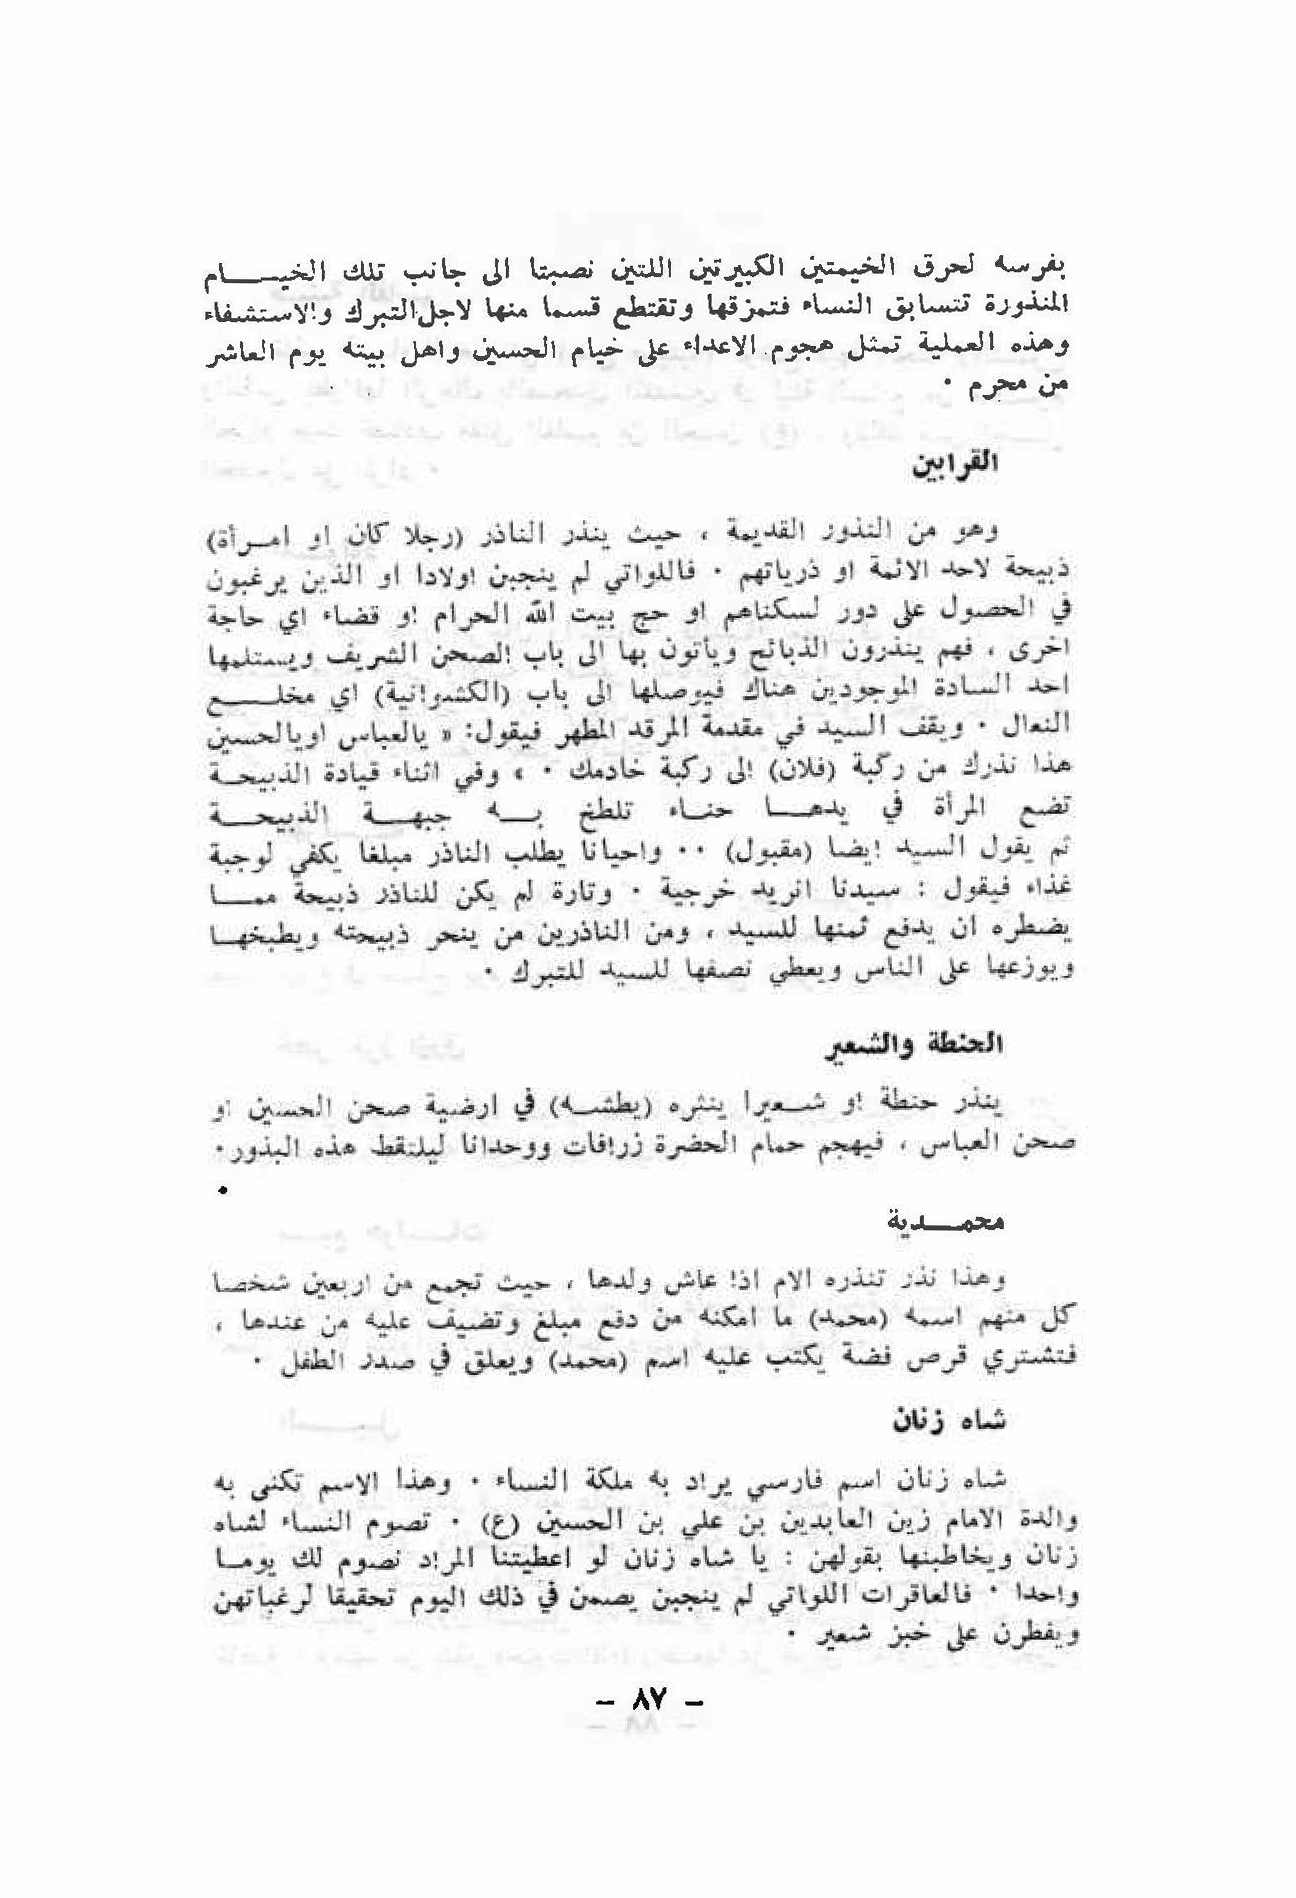 بفرسه لحرق الخيمتين الكبيرتين اللتين نصبتا الى جانب تلك الخيـــام
المنذورة تتسابق النساء فتمزقها وتقتطع قسما منها لاجل التبرك والاستشفاء
وهذه العملية تمثل هجوم الاعداء على خيام الحسين واهل بيته يوم العاشر
من محرم ٠
القرابين
وهو من النذور القديمة ، حيث ينذر الناذر (رجلا كان او امـرأة)
ذبيحة لاحد الائمة او ذرياتهم ٠ فاللواتي لم ينجبن اولادا او الذين يرغبون
في الحصول على دور لسكناهم او حج بيت الله الحرام او قضاء اي حاجة
اخرى ، فهم ينذرون الذبائح ويأتون بها الى باب الصحن الشريف ويستلمها
احد السادة الموجودين هناك فيوصلها الى باب (الكشوانية) اي مخلـــع
النعال ٠ ويقف السيد في مقدمة المرقد المطهر فيقول: « يالعباس اويالحسين
هذا نذرك من ركبة (فلان) الى ركبة خادمك ٠ » وفي اثناء قيادة الذبيحـة
تضع المرأة في يدهــا حنـاء تلطخ بــه جبهــة الذبيحــة
ثم يقول السيد ايضا (مقبول) ٠٠ واحيانا يطلب الناذر مبلغا يكفي لوجبة
غذاء فيقول : سيدنا انريد خرجية ٠ وتارة لم يكن للناذر ذبيحة ممـــا
يضطره ان يدفع ثمنها للسيد ، ومن الناذرين من ينحر ذبيحته ويطبخهـا
ويوزعها على الناس ويعطي نصفها للسيد للتبرك ٠
الحنطة والشعير
ينذر حنطة او شـعيرا ينثره (يطشـه) في ارضية صحن الحسين او
صحن العباس ، فيهجم حمام الحضرة زرافات ووحدانا ليلتقط هذه البذور٠
محمـــدية
وهذا نذر تنذره الام اذا عاش ولدها ، حيث تجمع من اربعين شخصا
كل منهم اسمه (محمد) ما امكنه من دفع مبلغ وتضيف عليه من عندها ،
فتشتري قرص فضة يكتب عليه اسم (محمد) ويعلق في صدر الطفل ٠
شاه زنان
شاه زنان اسم فارسي يراد به ملكة النساء ٠ وهذا الاسم تكنى به
والدة الامام زين العابدين بن علي بن الحسين (ع) ٠ تصوم النساء لشاه
زنان ويخاطبنها بقولهن : يا شاه زنان لو اعطيتنا المراد نصوم لك يومـا
واحدا ٠ فالعاقرات اللواتي لم ينجبن يصمن في ذلك اليوم تحقيقا لرغباتهن
ويفطرن على خبز شعير ٠
– ٨٧ –